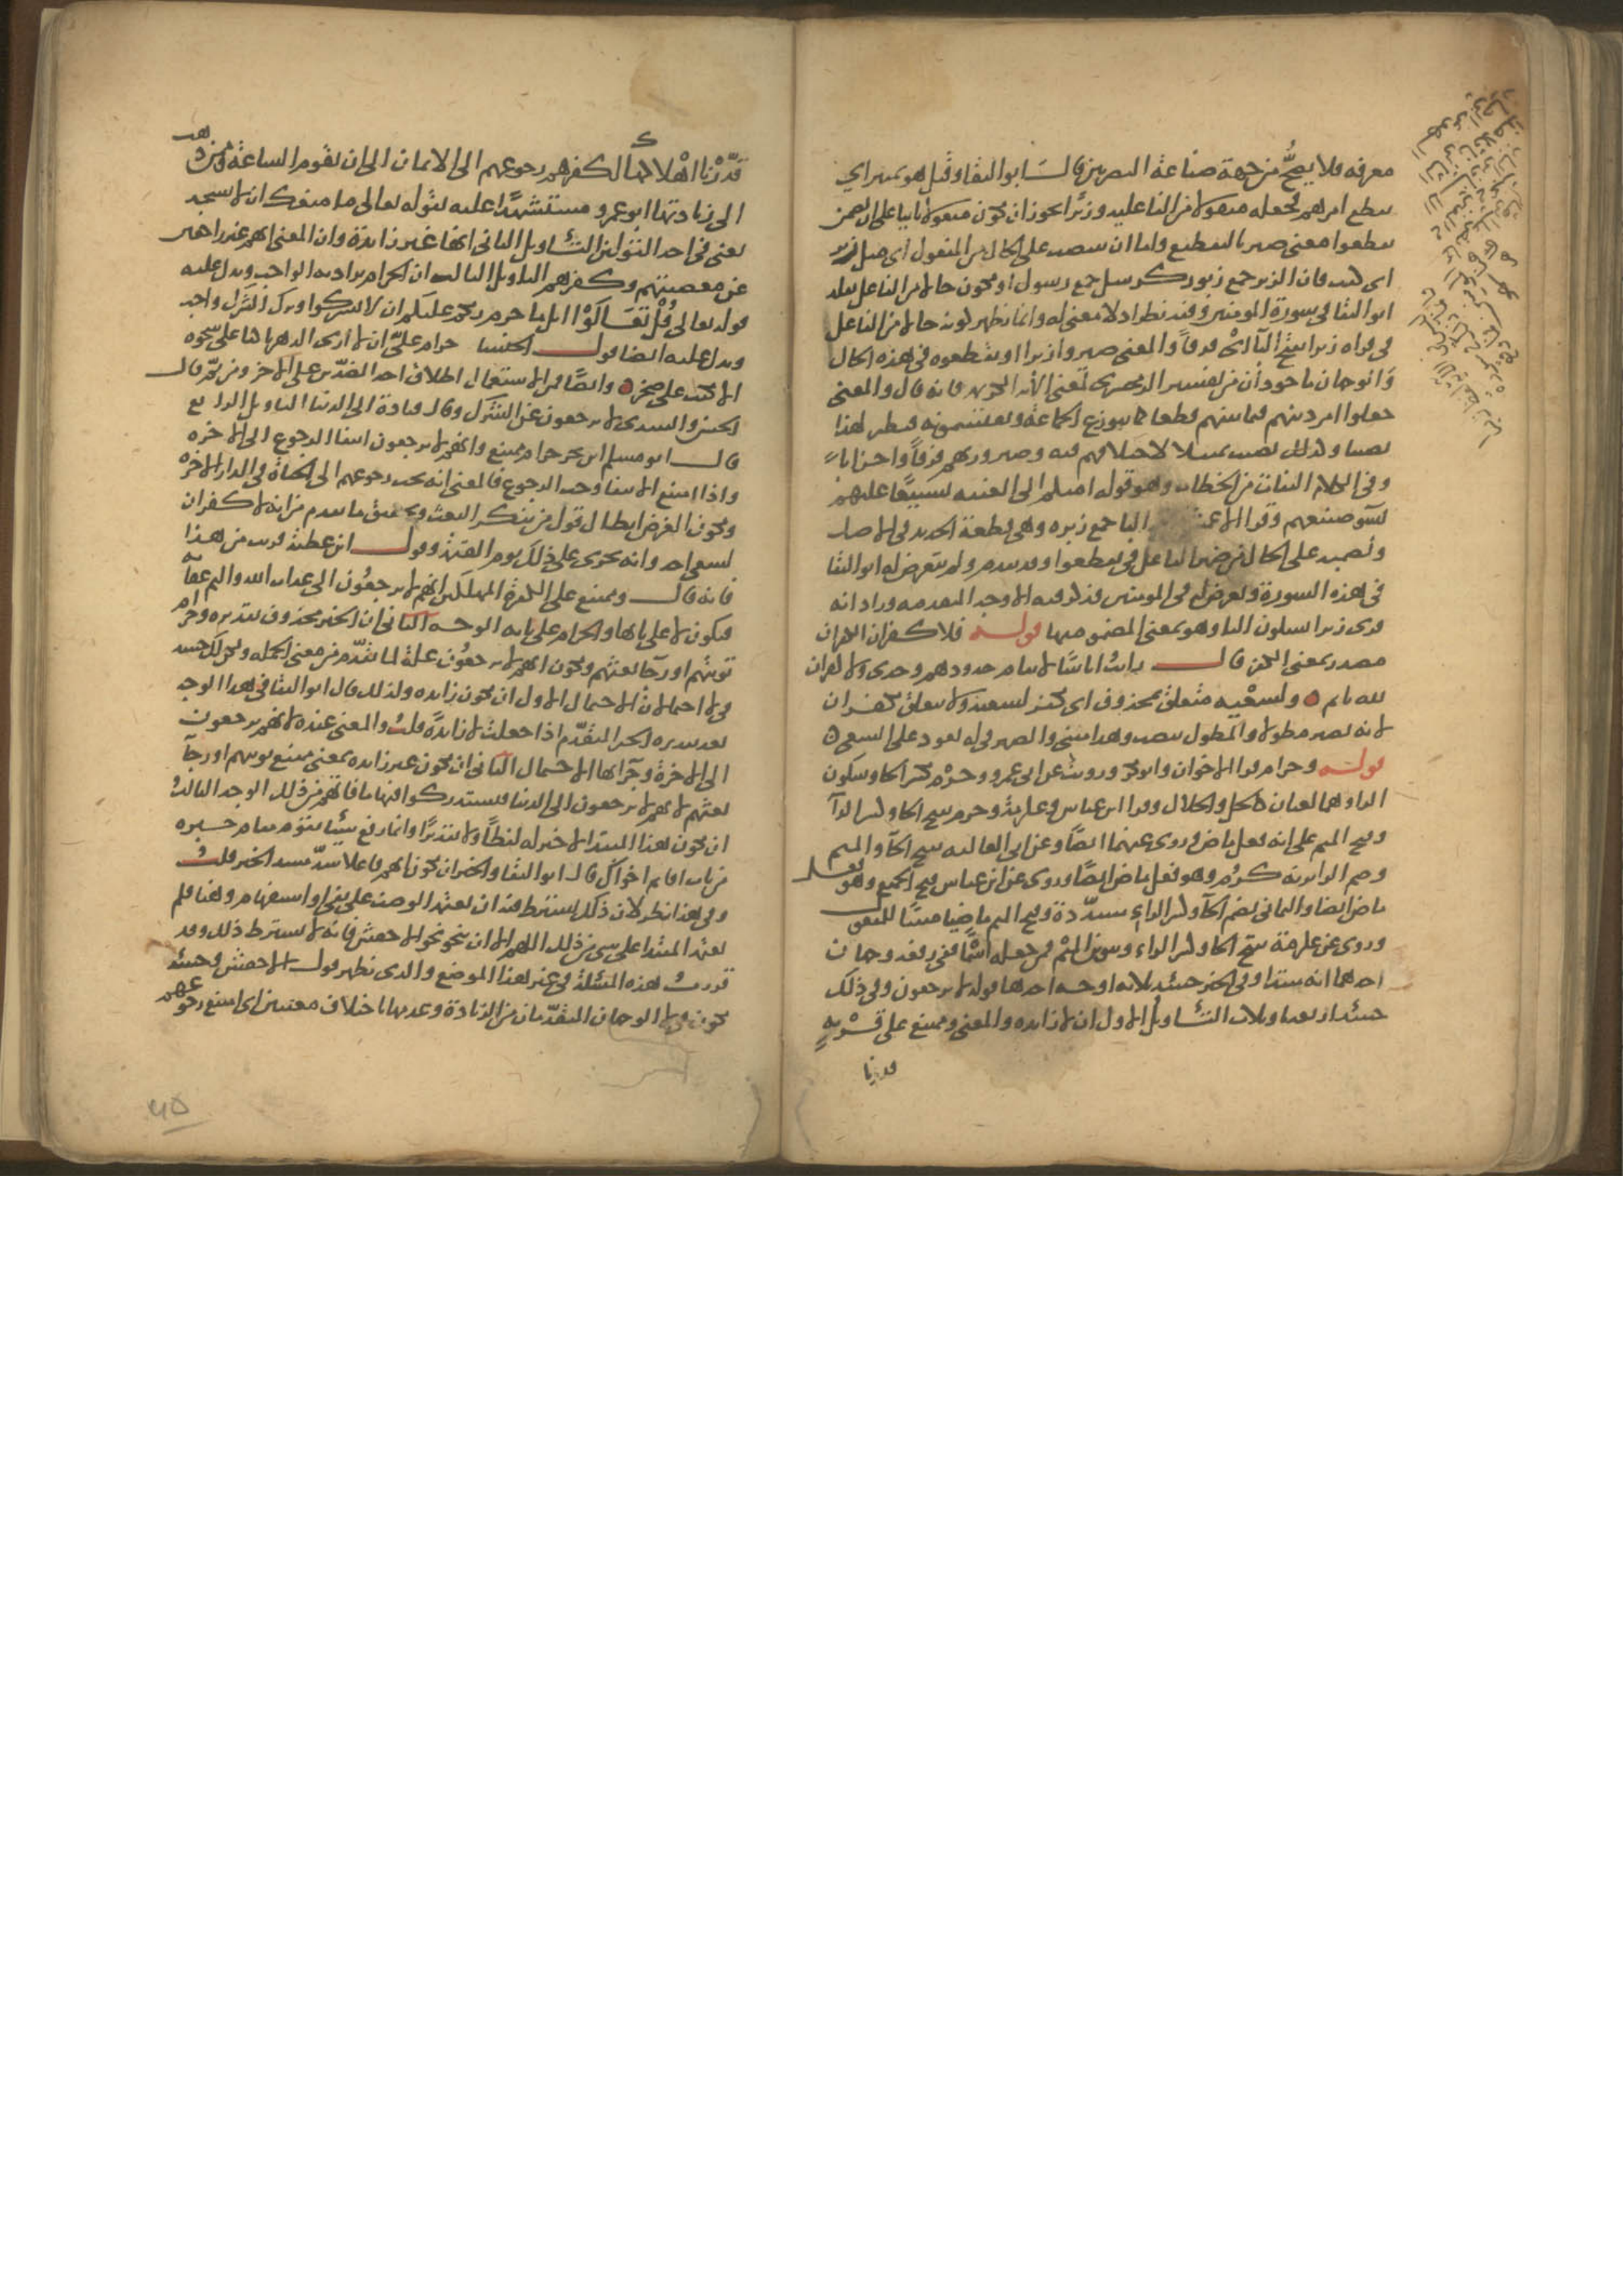 معرفه فلا يصحُّ من جهة صناعة البصريين قال ابو البقا وقيل هو تمييز اي
تقطع امرهم لجعله منقولا من الفاعليه وزبرا يجوز ان يكون مفعولا ثانيا على ان يضمن
تقطعوا معنى صير بالتقطيع واما ان ينصب على الحال من المفعول اي مثل زبر
اي كتب فان الزبر جمع زبور كرسل جمع رسول او يكون حالا من الفاعل نقله
ابو البقا في سورة المومنين وفيه نظر اذ لا معنى له وانما يظهر كونه حالا من الفاعل
في قراه زبرا بفتح البآ اي فرقاً والمعنى صيروا زبرا او تقطعوه في هذه الحال
والوجهان ماخوذان من تفسير الزمخشري لمعنى الآيه الكريمه فانه قال والمعنى
جعلوا امر دينهم فيما بينهم قطعا كما يتوزع الجماعة ويقتسمونه فيطير لهذا
نصيب ولذلك نصيب تمثيلا لاختلافهم فيه وصيرورتهم فرقاً واحزاباً
وفي الكلام التفات من الخطاب وهو قوله امتكم الى الغيبه تشنيعًا عليهم
بسوء صنيعهم وقرا الاعمش البا جمع زبره وهي قطعة الحديد في الاصل
ونصبه على الحال من ضمير الفاعل في تقطعوا وقد تقدم ولم يتعرض له ابو البقا
في هذه السورة وتعرض له في المومنين فذكر فيه الاوجه المتقدمه وزاد انه
قرى زبرا بسكون البا وهو بمعنى المضموم منها قوله فلا كفران الكفران
مصدر بمعنى الكفر قال رايت اناسًا لا تنام جدودهم وجدي ولا كفران
لله نايم ٥ ولسعيه متعلق بمحذوف اي نكفر لسعيه ولا يتعلق بكفران
لانه يصير مطولا والمطول ينصب وهذا مبني والضمير في له يعود على السعي ٥
قوله وحرام قرا الاخوان وابو بكر ورويت عن ابي عمرو وحِرْم بكسر الحا وسكون
الرا وهما لغتان كالحل والحلال وقرا ابن عباس وعكرمة وحرم بفتح الحا وكسر الرآ
وفتح الميم على انه فعل ماض وروى عنهما ايضًا وعن ابي العاليه بفتح الحآ والميم
وضم الرا بزنة كرُم وهو فعل ماض ايضًا وروى عن ابن عباس فتح الجميع وهو فعل
ماض ايضا واليماني بضم الحآ وكسر الراء مشدّدة وفتح الميم ماضيا مبنيًا للمفعول
وروى عن عكرمة بفتح الحا وكسر الراء وتنوين الميم فمن جعله اسمًا ففي رفعه وجهان
احدهما انه مبتدا وفي الخبر حينئذ ثلاثه اوجه احدها قوله لا يرجعون وفي ذلك
حينئذ اربعة تاويلات التأويل الاول ان لا زايده والمعنى وممتنع على قَرْيةٍ
قدرنا
قدّرْنا اهْلاكها لكفرهم رجوعهم الى الايمان الى ان تقوم الساعة وممن ذهب
الى زيادتها ابو عمرو مستشهدًا عليه بقوله تعالى ما منعك ان لا تسجد
يعني في احد القولين التأويل الثاني انها غير زايدة وان المعنى انهم غير راجعين
عن معصيتهم وكفرهم التاويل الثالث ان الحرام يراد به الواجب ويدل عليه
قوله تعالى قُلْ تعَالَوْا اتل ما حرم ربكم عليكم ان لا تشركوا وترك الشرك واجب
ويدل عليه ايضا قول الخنسا حرام عليّ ان لا ارى الدهر باكيا على شجوه
الا بكيت على صخر ٥ وايضًا فمن الاستعمال اطلاق احد الضدّين على الآخر ومن ثمّ قال
الحسن والسدى لا يرجعون عن الشرك وقال قتادة الى الدنيا التاويل الرابع
قال ابو مسلم ابن بحر حرام ممتنع وانهم لا يرجعون انتفا الرجوع الى الاخره
واذا امتنع الانتفا وجب الرجوع فالمعنى انه يجب رجوعهم الى الحياة في الدار الاخره
ويكون الغرض ابطال قول من ينكر البعث وتحقيق ما تقدم من انه لا كفران
لسعي احد وانه يجزى على ذلك يوم القيمة وقول ابن عطية قريب من هذا
فانه قال وممتنع على الكفرة المهلكين انهم لا يرجعُون الى عذاب الله واليم عقابه
فتكون لا على بابها والحرام على بابه الوجه الثاني ان الخبر محذوف تقديره وحرام
توبتهم او رجآ بعثهم ويكون انهم لا يرجعُون علة لما تقدّم من معنى الجمله ولكن لك حينئذ
في لا احتمالات الاحتمال الاول ان تكون زايده ولذلك قال ابو البقا في هذا الوجه
بعد تقديره الخبر المتقدّم اذا جعلت لا زايدةً قلتُ والمعنى عنده لانهم يرجعون
الى الاخرة وجزآيها الاحتمال الثاني ان تكون غير زايده بمعنى ممتنع توبتهم او رجآ
بعثهم لانهم لا يرجعون الى الدنيا فيستدركوا فيها ما فاتهم من ذلك الوجه الثالث
ان يكون هذا المبتدا لا خبر له لفظًا ولا تقديرًا وانما رفع شيئا يقوم مقام خبره
من باب اقايم اخواك قال ابو البقا والجيد ان يكون انهم فاعلا سدّ مسد الخبر قلت
وفي هذا نظر لان ذلك يشترط فيه ان يعتمد الوصف على نفى او استفهام وهنا فلم
يعتمد المبتدا على شى من ذلك اللهم الا ان ينحو نحو الاخفش فانه لا يشترط ذلك وقد
قررت هذه المسئلة في غير هذا الموضع والذي يظهر قول الاخفش وحينئذ
يكون في لا الوجهان المتقدّمان من الزيادة وعدمها باختلاف معنيين اى امتنع رجوعهم